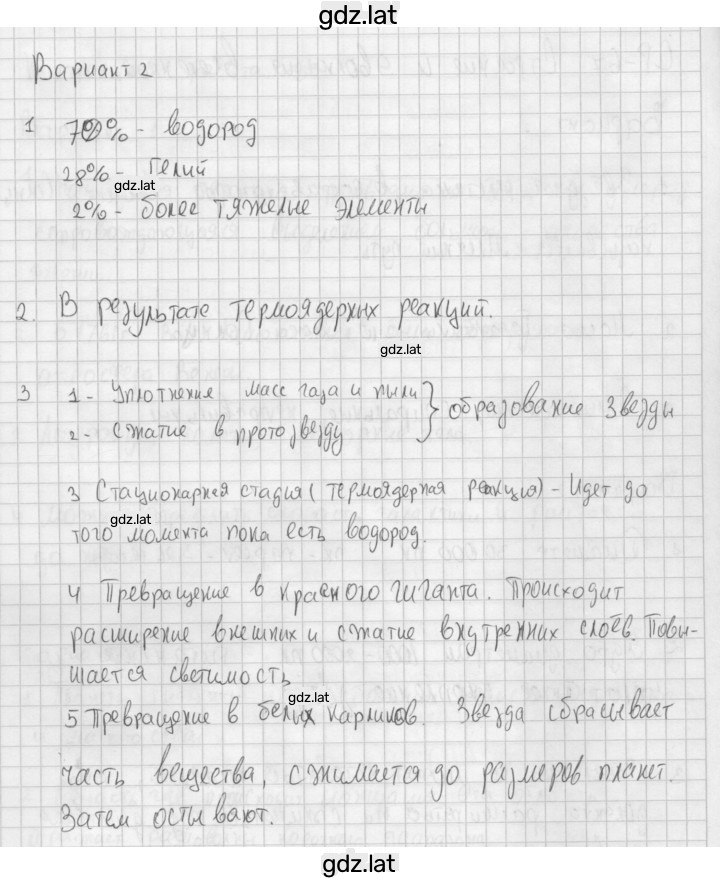 gdz.lat
Вариант 2
1 70% - водород
28% - Гелий
gdz.lat
2% - более тяжелые элементы
2. В результате термоядерных реакций.
gdz.lat
3 1 - Уплотнения масс газа и пыли
2 - сжатие в протозвезду
} образование звезды
3 Стационарная стадия (термоядерная реакция) - Идет до
gdz.lat
того момента пока есть водород.
4 Превращение в Красного гиганта. Происходит
расширение внешних и сжатие внутренних слоёв. Повы-
шается светимость
gdz.lat
5 Превращение в белых карликов. Звезда сбрасывает
часть вещества, сжимается до размеров планет.
Затем остывают.
gdz.lat